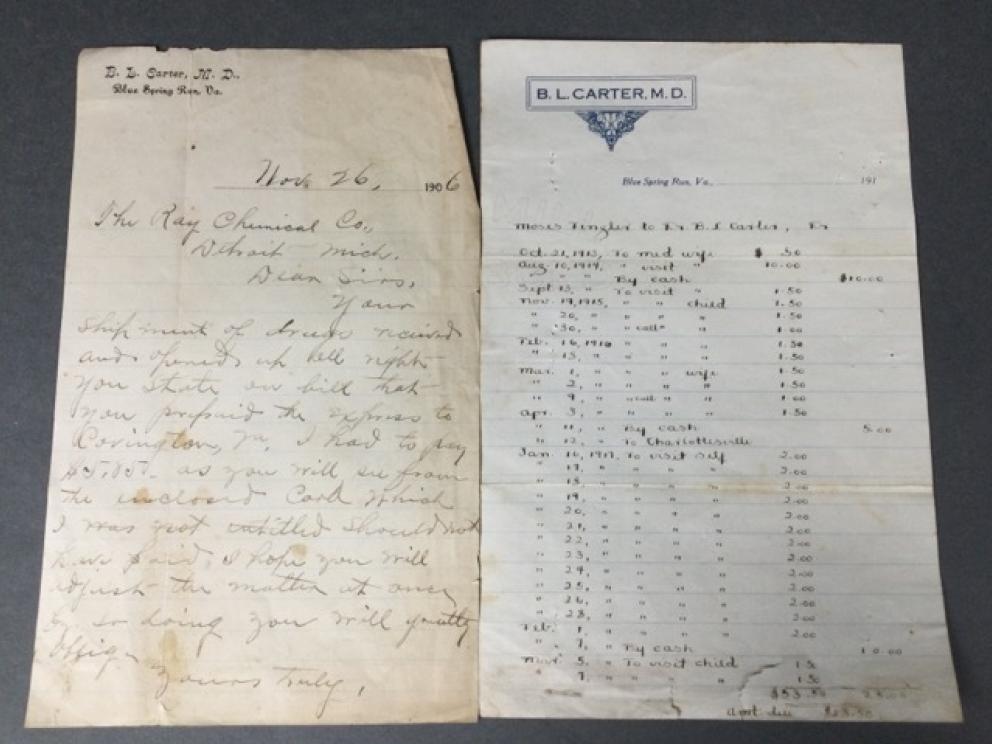 B. L. Carter, M. D.,
Blue Spring Run, Va.
Nov. 26, 1906
The Ray Chemical Co.,
Detroit Mich.
Dear Sirs,
Your
shipment of received
and opened up all right
you state on bill that
you prepaid the express to
Covington, Va. I had to pay
as you will see from
the inclosed Card which
I was not entitled should not
have paid. I hope you will
adjust the matter at once
by so doing you will greatly
oblige
Yours truly,
B. L. CARTER, M.D.
Blue Spring Run, Va., 191
Moses to Dr. B. L. Carter, Dr
Oct. 21, 1913, To med wife $ .50
Aug. 10, 1914, " visit " 10.00
" " By cash $10.00
Sept 13, " To visit " 1.50
Nov. 19, 1915, " " child 1.50
" 20, " " " " 1.50
" 30, " " call " " 1.00
Feb. 16, 1916 " " " 1.50
" 18, " " " " 1.50
Mar. 1, " " " wife 1.50
" 2, " " " " 1.50
" 9, " " call " " 1.00
Apr. 3, " " " " 1.50
" 11, " By cash 5.00
" 12, " To Charlottesville
Jan. 16, 1917, To visit self 2.00
" 17, " " " " 2.00
" 18, " " " " 2.00
" 19, " " " " 2.00
" 20, " " " " 2.00
" 21, " " " " 2.00
" 22, " " " " 2.00
" 23, " " " " 2.00
" 24, " " " " 2.00
" 25, " " " " 2.00
" 26, " " " " 2.00
" 28, " " " " 2.00
Feb. 1, " " " " 2.00
" 7, " By cash 10.00
Mar. 5, " To visit child 1.50
" 7, " " " " 1.50
$53.50 25.00
Amt. due $28.50